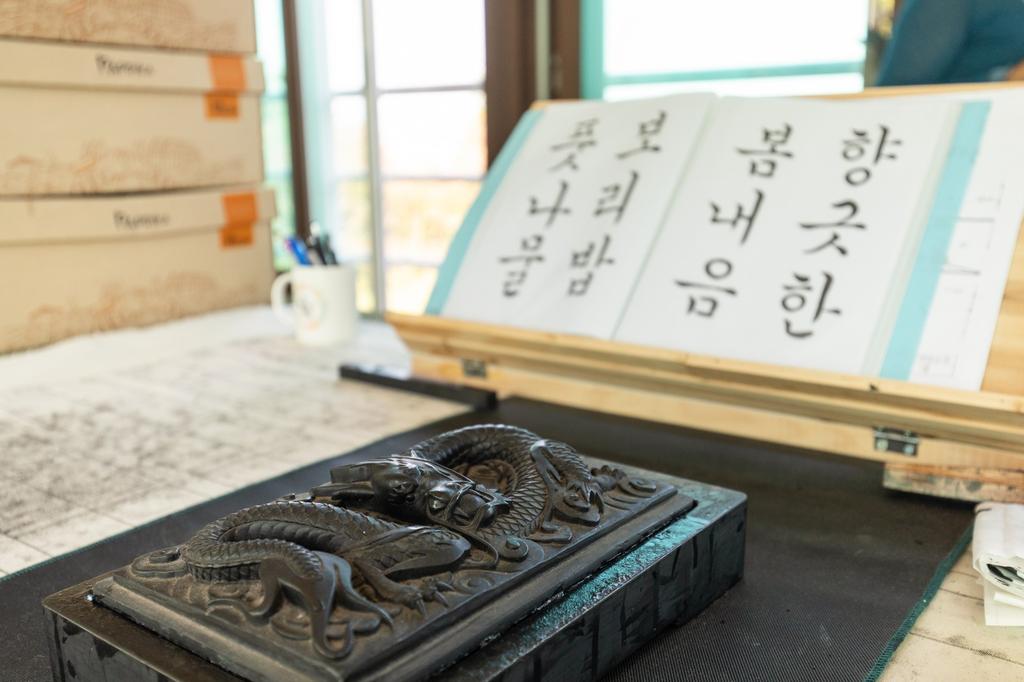 향긋한
봄내음
보리밥
풋나물